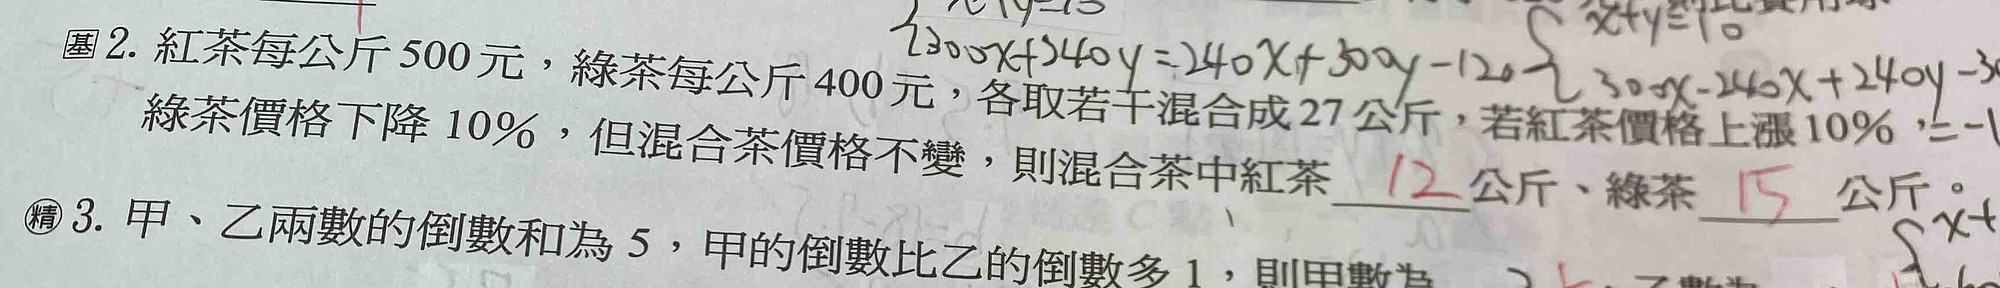 x+y=15
300x+340y=240x+300y-120
x+y=10
300x-240x+240y-30
=-1
基 2. 紅茶每公斤 500 元，綠茶每公斤 400 元，各取若干混合成 27 公斤，若紅茶價格上漲 10%，
綠茶價格下降 10%，但混合茶價格不變，則混合茶中紅茶 12 公斤、綠茶 15 公斤。
x+
精 3. 甲、乙兩數的倒數和為 5，甲的倒數比乙的倒數多 1，則甲數為